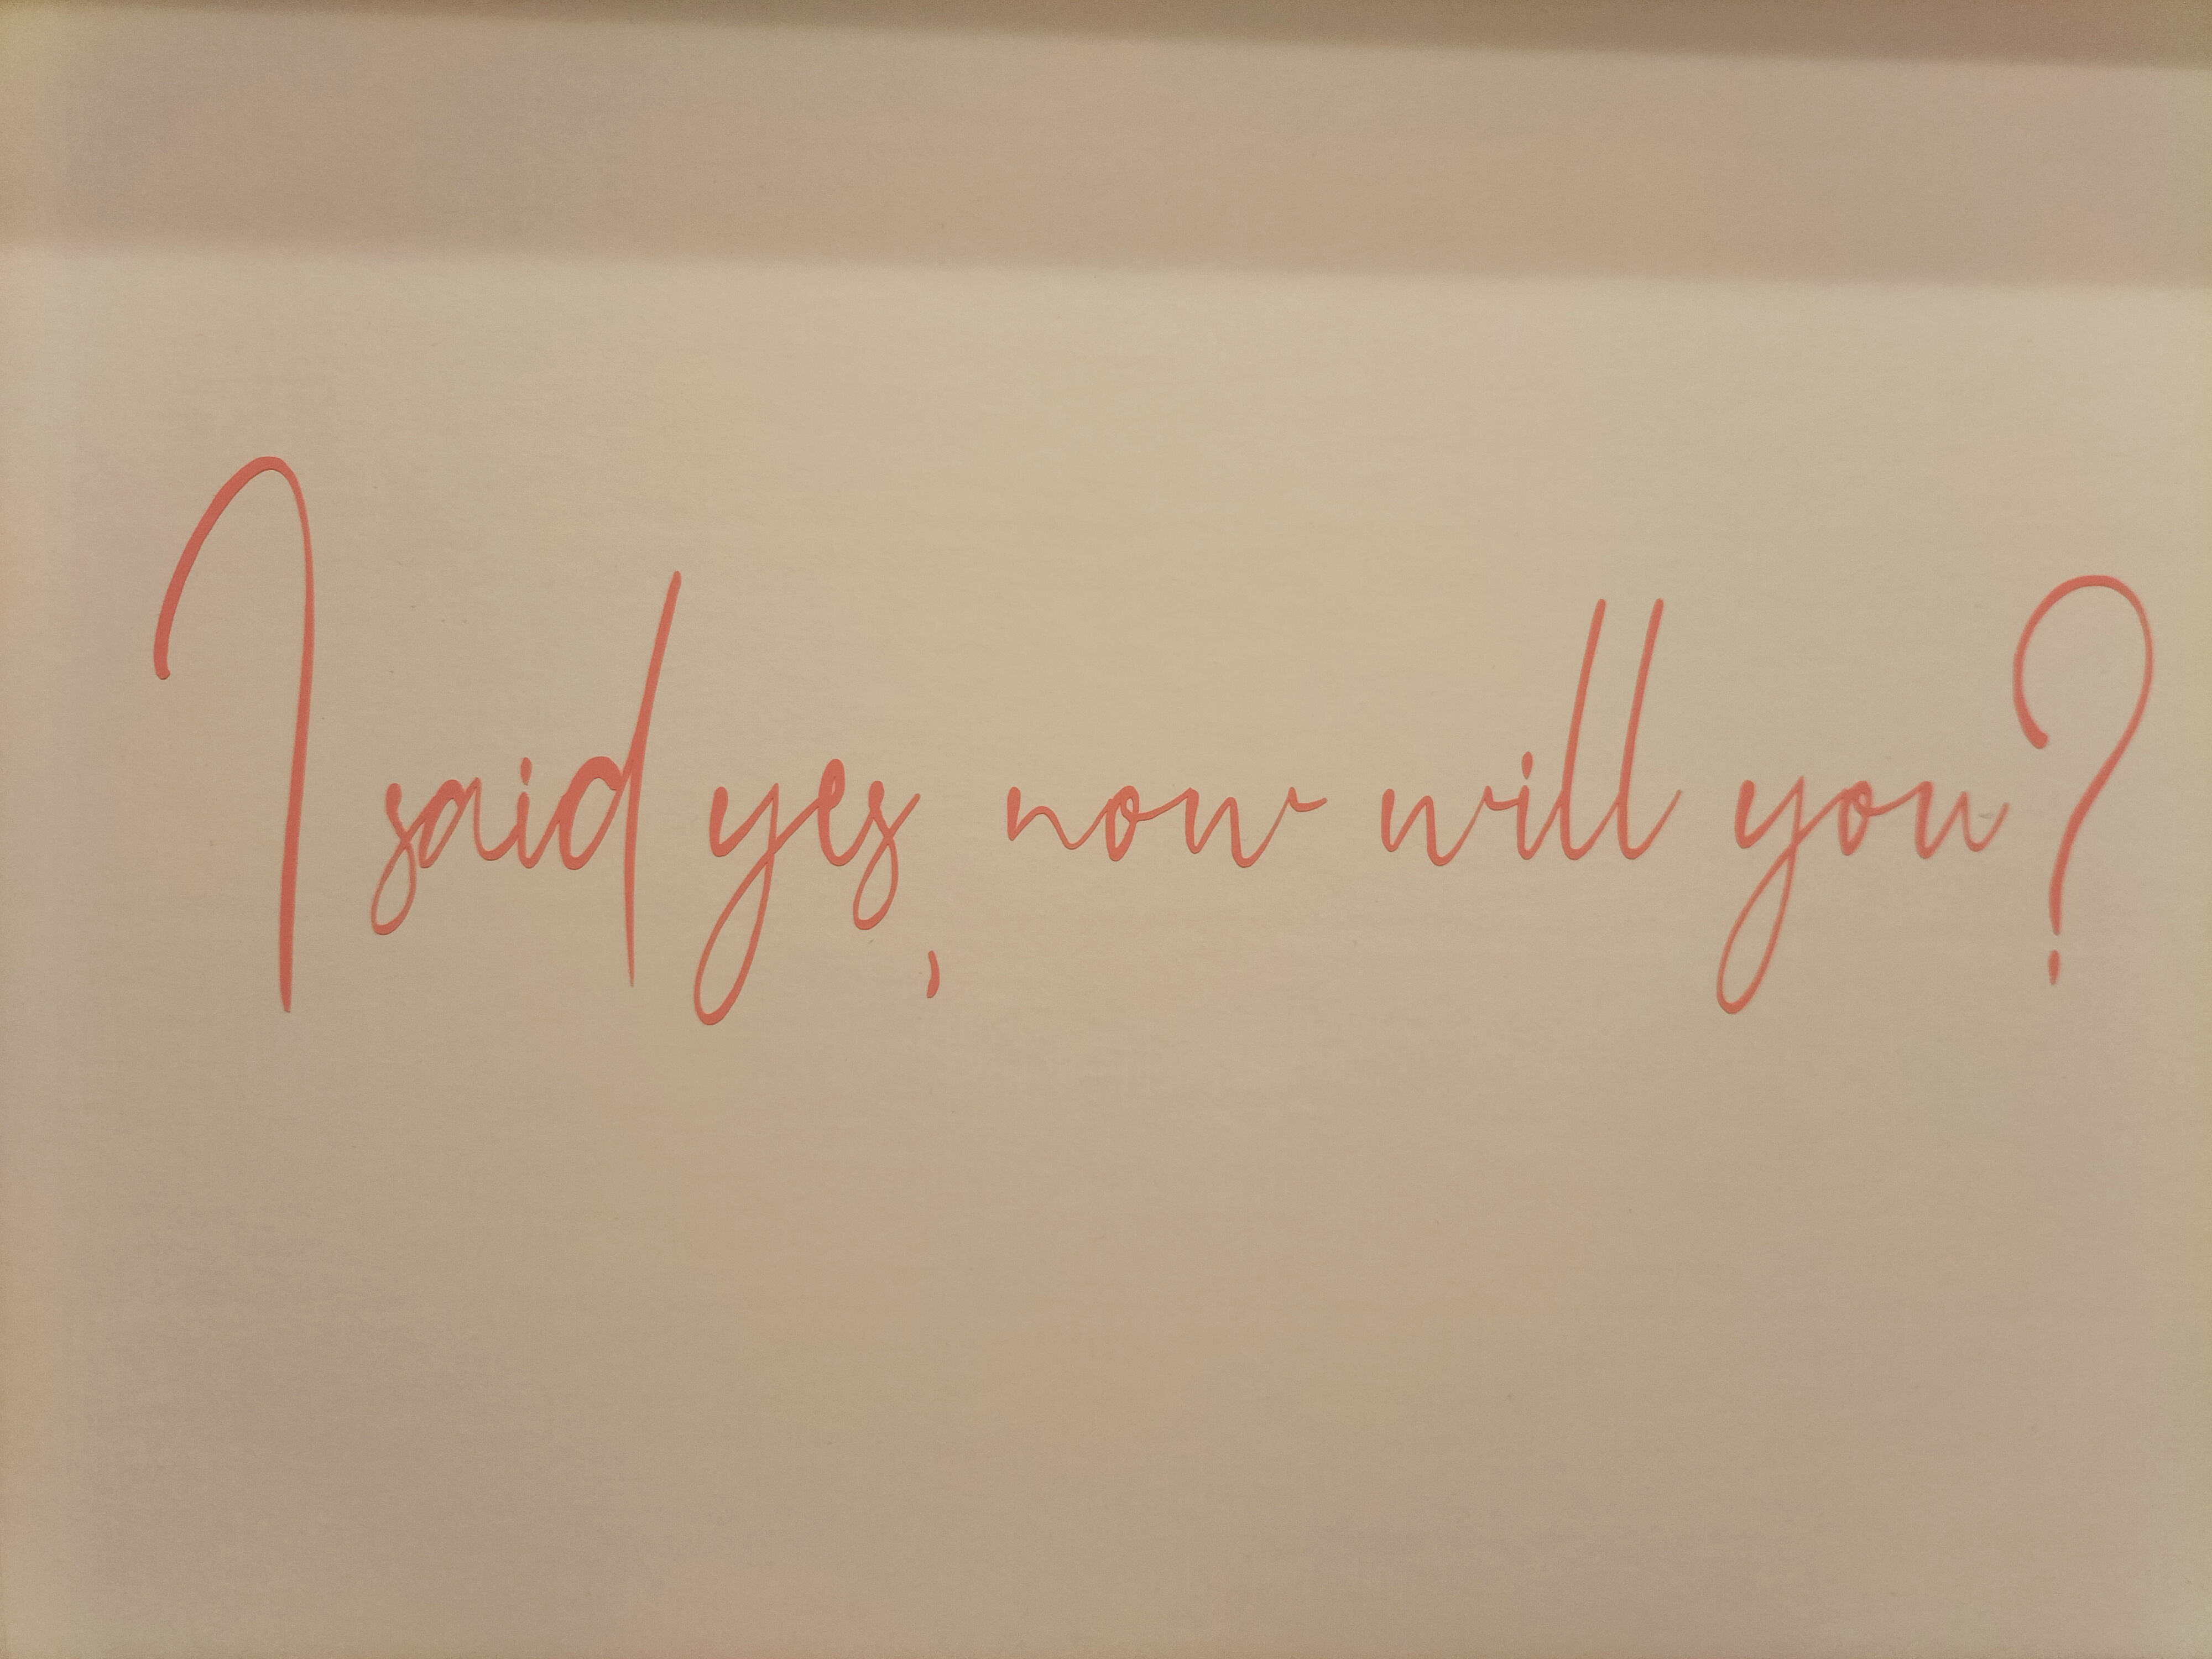 I said yes, now will you?